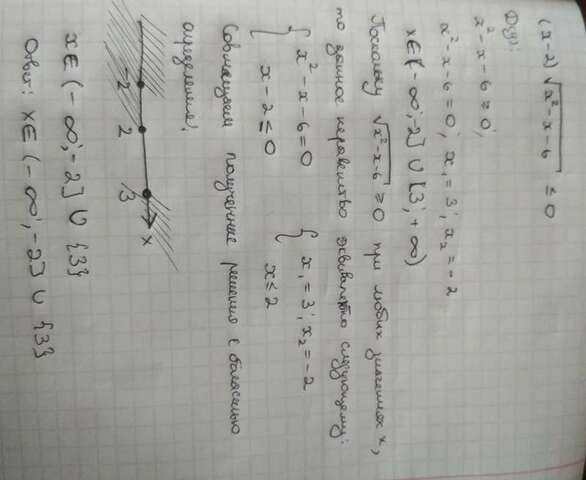 (x-2) √x²-x-6 ≤ 0
x²-x-6 ≥ 0;
x²-x-6=0; x₁=3; x₂=-2
x∈(-∞;-2] ∪ [3;+∞)
Поскольку √x²-x-6 ≥ 0 при любых значениях x,
то данное неравенство эквивалентно следующему:
{ x²-x-6=0 { x₁=3; x₂=-2
{ x-2≤0 x≤2
Совмещаем полученные решения с областью
определения:
-2 2 3 x
x∈(-∞;-2] ∪ {3}
Ответ: x∈(-∞;-2] ∪ {3}